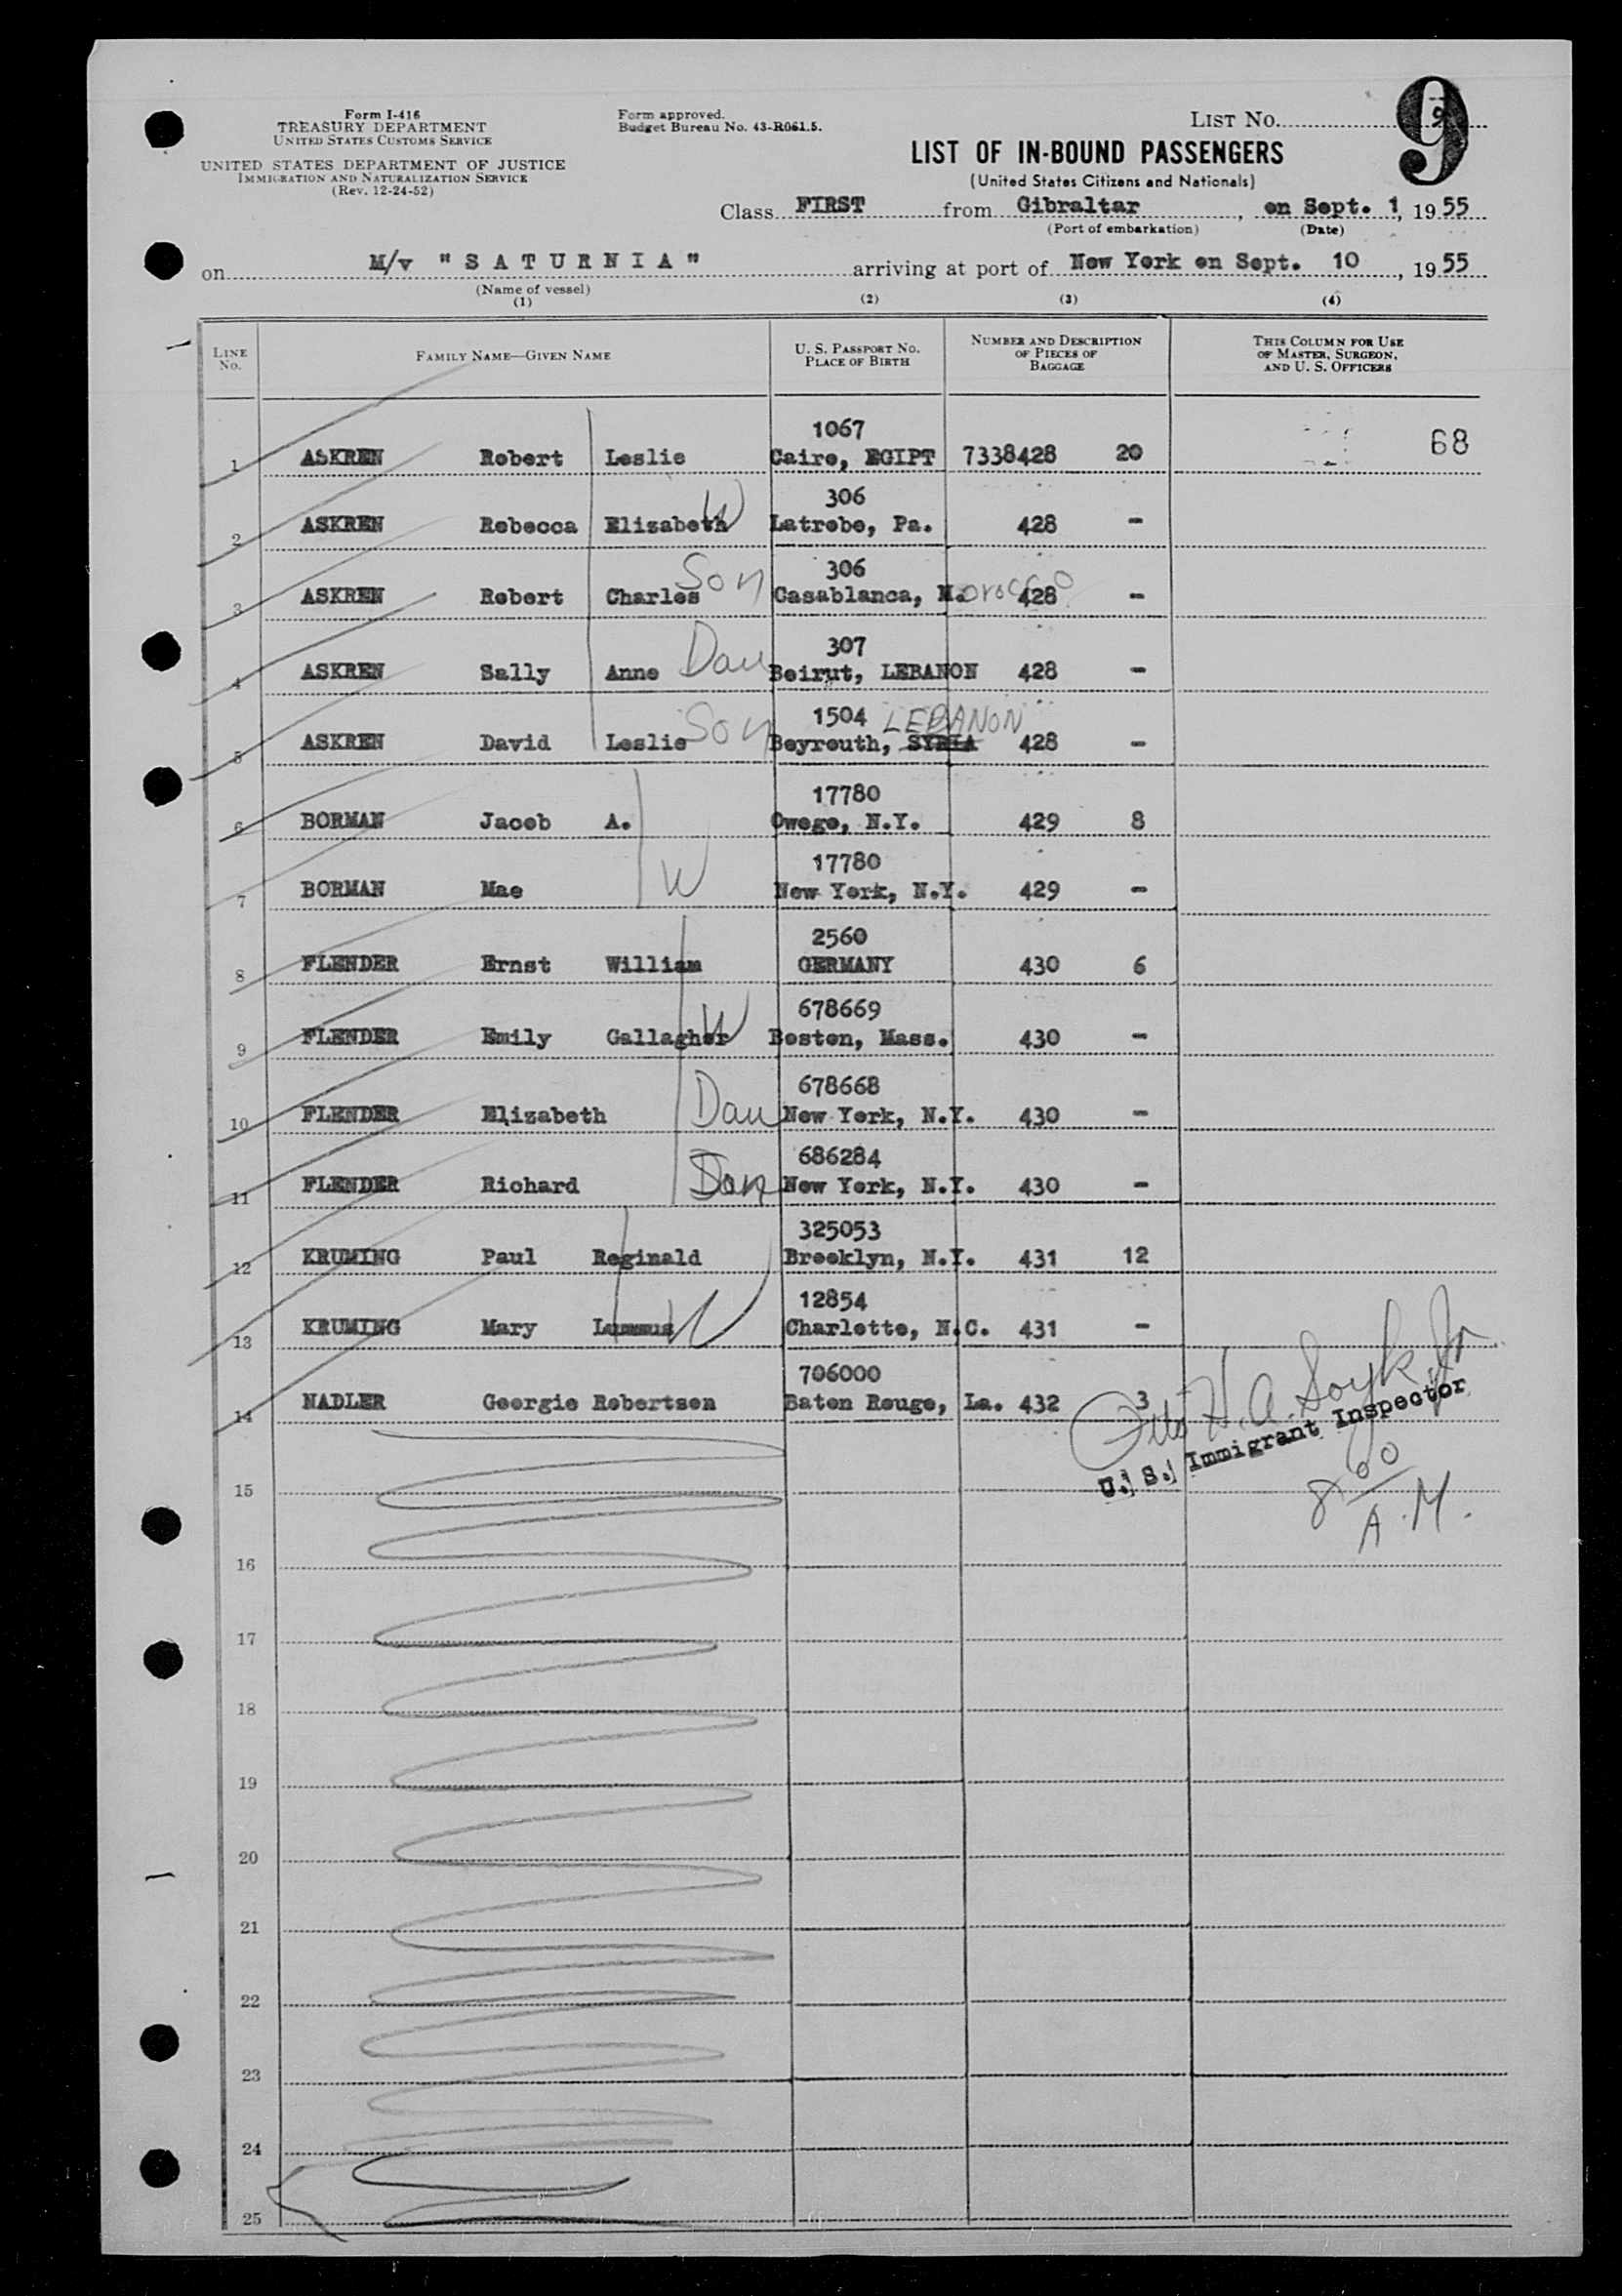 Form I-416
TREASURY DEPARTMENT
UNITED STATES CUSTOMS SERVICE
UNITED STATES DEPARTMENT OF JUSTICE
IMMIGRATION AND NATURALIZATION SERVICE
(Rev. 12-24-52)
Form approved.
Budget Bureau No. 43-R061.5.
LIST NO. 9
9
LIST OF IN-BOUND PASSENGERS
(United States Citizens and Nationals)
Class FIRST from Gibraltar, on Sept. 1, 1955
(Port of embarkation) (Date)
on M/v "SATURNIA" arriving at port of New York on Sept. 10, 1955
(Name of vessel)
(1) (2) (3) (4)
LINE No. FAMILY NAME—GIVEN NAME U. S. PASSPORT NO. PLACE OF BIRTH NUMBER AND DESCRIPTION OF PIECES OF BAGGAGE THIS COLUMN FOR USE OF MASTER, SURGEON, AND U. S. OFFICERS
1067
1 ASKREN Robert Leslie Cairo, EGIPT 7338428 20 68
306
2 ASKREN Rebecca Elizabeth W Latrobe, Pa. 428 -
306
3 ASKREN Robert Charles Son Casablanca, M.orocco 428 -
307
4 ASKREN Sally Anne Dau Beirut, LEBANON 428 -
1504 LEBANON
5 ASKREN David Leslie Son Beyrouth, SYRIA 428 -
17780
6 BORMAN Jacob A. Owego, N.Y. 429 8
17780
7 BORMAN Mae W New York, N.Y. 429 -
2560
8 FLENDER Ernst William GERMANY 430 6
678669
9 FLENDER Emily Gallagher W Boston, Mass. 430 -
678668
10 FLENDER Elizabeth Dau New York, N.Y. 430 -
686284
11 FLENDER Richard Son New York, N.Y. 430 -
325053
12 KRUMING Paul Reginald Brooklyn, N.Y. 431 12
12854
13 KRUMING Mary Lummus W Charlotte, N.C. 431 -
706000
14 NADLER Georgie Robertson Baton Rouge, La. 432 3
Otto H. A. Soyk Jr
U. S. Immigrant Inspector
8 00
A.M.
15
16
17
18
19
20
21
22
23
24
25